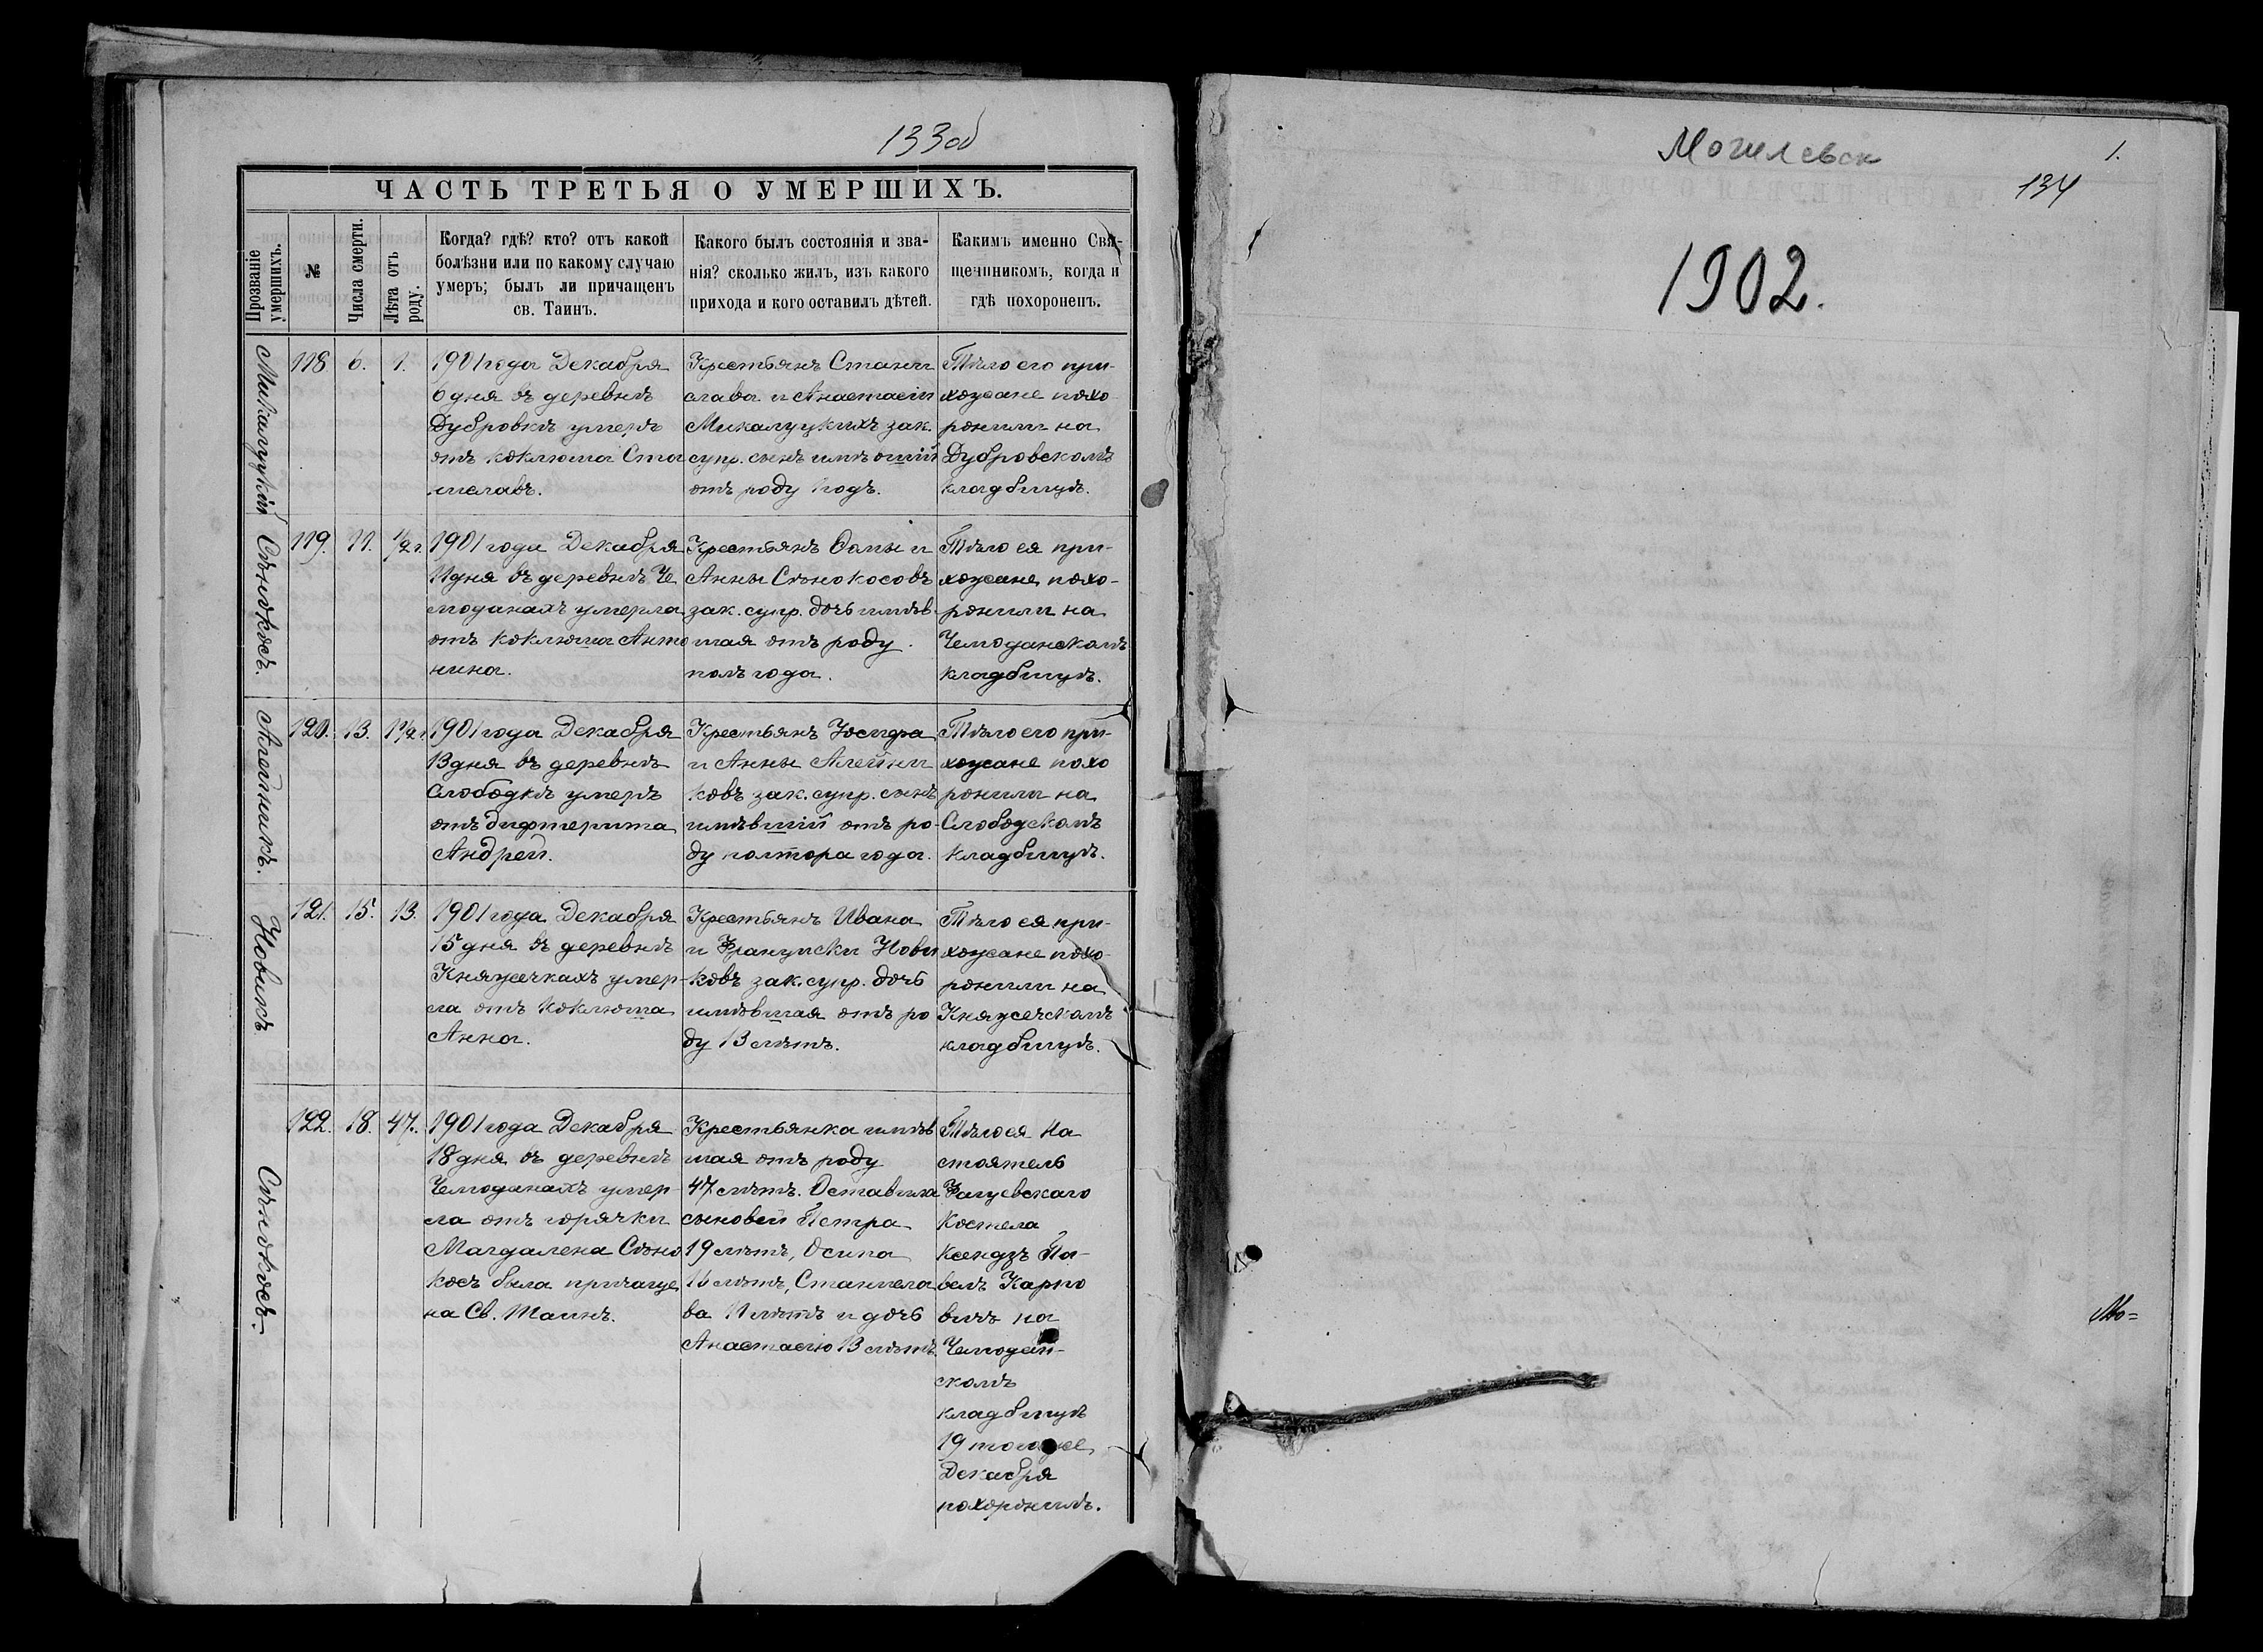 133об
ЧАСТЬ ТРЕТЬЯ О УМЕРШИХЪ.
Прозваніе умершихъ.
№
Числа смерти.
Лѣта отъ роду.
Когда? гдѣ? кто? отъ какой
болѣзни или по какому случаю
умеръ; былъ ли причащенъ
св. Таинъ.
Какого былъ состоянія и зва-
нія? сколько жилъ, изъ какого
прихода и кого оставилъ дѣтей.
Какимъ именно Свя-
щенникомъ, когда и
гдѣ похороненъ.
Микалуцкій
118
6.
1.
1901 года Декабря
6 дня въ деревнѣ
Дубровкѣ умеръ
отъ коклюша Ста
ниславъ.
Крестьянъ Стани
слава и Анастасіи
Микалуцкихъ зак.
супр. сынъ имѣвшій
отъ роду 1 годъ.
Тѣло его при-
хожане похо
ронили на
Дубровскомъ
кладбищѣ.
Сѣнокосъ.
119.
11.
1/2 г.
1901 года Декабря
11 дня въ деревнѣ Че
моданахъ умерла
отъ коклюша Анто
нина.
Крестьянъ Ѳомы и
Анны Сѣнокосовъ
зак. супр. дочь имѣв-
шая отъ роду
полъ года.
Тѣло ея при-
хожане похо-
ронили на
Чемоданскомъ
кладбищѣ.
Алейникъ.
120.
13.
1 1/2 г.
1901 года Декабря
13 дня въ деревнѣ
Слободкѣ умеръ
отъ дифтерита
Андрей.
Крестьянъ Іосифа
и Анны Алейни
ковъ зак. супр. сынъ
имѣвшій отъ ро-
ду полтора года.
Тѣло его при-
хожане похо
ронили на
Слободскомъ
кладбищѣ.
Новикъ
121.
15.
13.
1901 года Декабря
15 дня въ деревнѣ
Княжечкахъ умер-
ла отъ коклюша
Анна.
Крестьянъ Ивана
и Француски Нови
ковъ зак. супр. дочь
имѣвшая отъ ро
ду 13 лѣтъ.
Тѣло ея при-
хожане похо-
ронили на
Княжечскомъ
кладбищѣ.
Сѣнокосъ.
122.
18.
47.
1901 года Декабря
18 дня въ деревнѣ
Чемоданахъ умер-
ла отъ горячки
Магдалена Сѣно
косъ была причаще
на Св. Таинъ.
Крестьянка имѣв
шая отъ роду
47 лѣтъ. Оставила
сыновей Петра
19 лѣтъ, Осипа
лѣтъ, Станисла
ва 11 лѣтъ и дочь
Анастасію 13 лѣтъ.
Тѣло ея На
стоятель
Фащевскаго
Костела
Ксендзъ Па-
велъ Карпо
вичъ на
Чемодан-
скомъ
кладбищѣ
19 того же
Декабря
похоронилъ.
Могилевск
1.
134
1902.